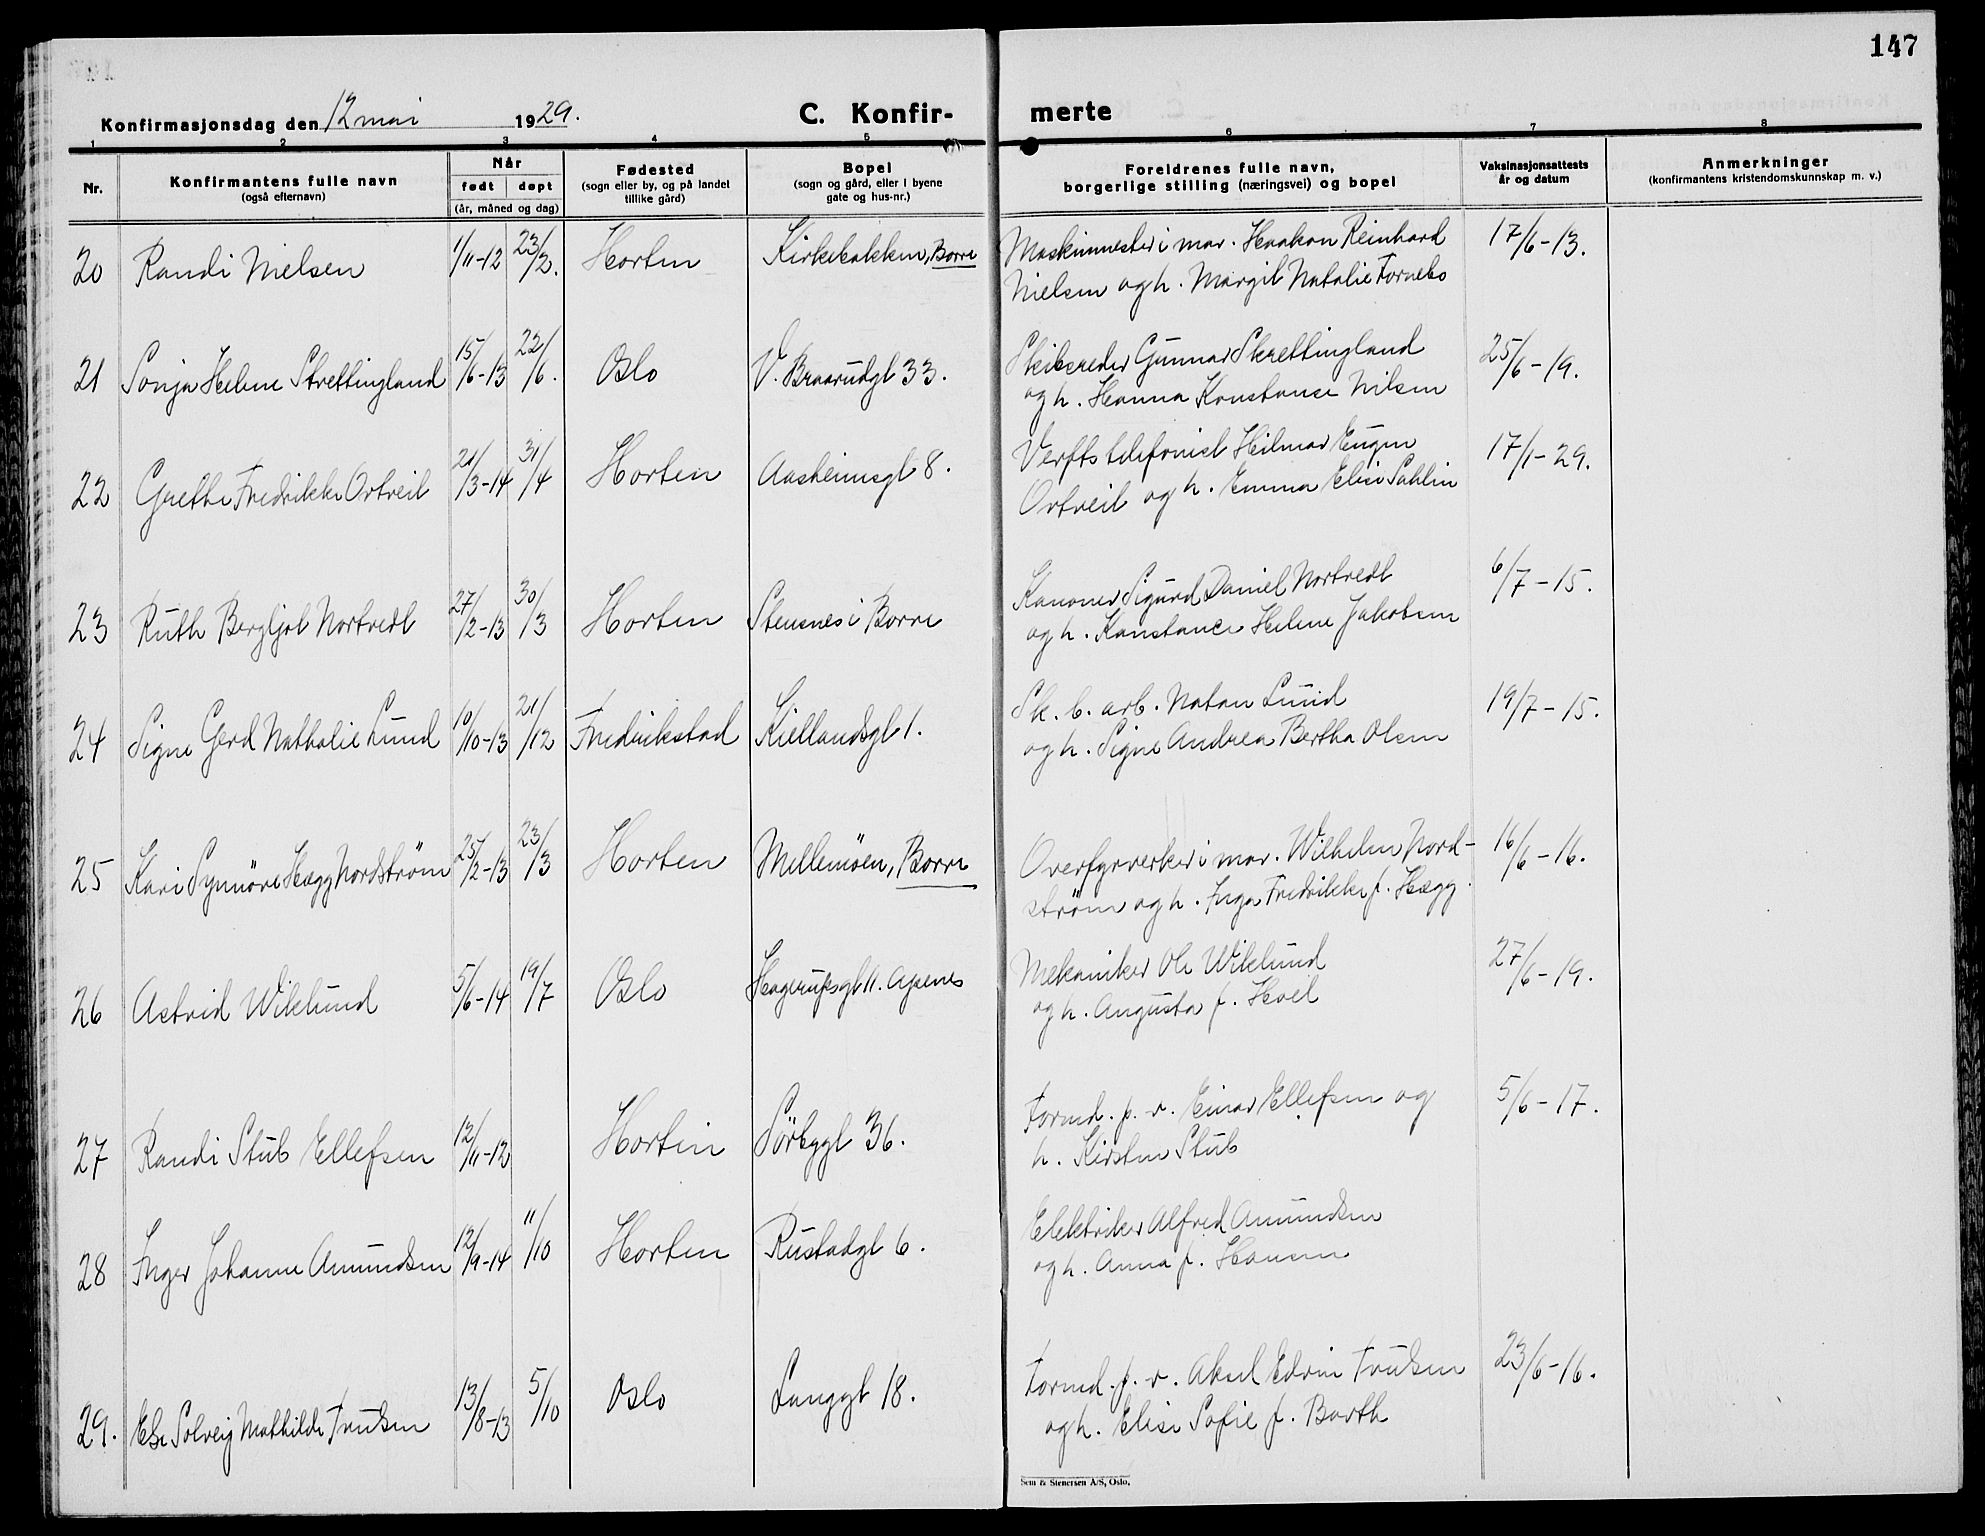 147
Konfirmasjonsdag den 12 mai 1929.
C. Konfir-
merte
1 2 3 4 5 6 7 8
Nr.
Konfirmantens fulle navn
(også efternavn)
Når
født døpt
(år, måned og dag)
Fødested
(sogn eller by, og på landet
tillike gård)
Bopel
(sogn og gård, eller i byene
gate og hus-nr.)
Foreldrenes fulle navn,
borgerlige stilling (næringsvei) og bopel
Vaksinasjonsattests
år og datum
Anmerkninger
(konfirmantens kristendomskunnskap m. v.)
20 Randi Nielsen 1/11-12 23/2. Horten Kirkebakken, Borre
Maskinmester i mar. Haakon Reinhard 17/6-13.
Nielsen og h. Margit Natalie Fornebo
21 Sonja Helene Skrettingland 15/6-13 22/6. Oslo V. Braarudgt 33.
Skibsreder Gunnar Skrettingland 25/6-19.
og h. Hanna Konstanse Nilsen
22 Grethe Fredrikke Ortveit 21/3-14 31/4 Horten Aasheimsgt 8.
Verftstelefonist Hilmar Eugen 17/1-29.
Ortveit og h. Emma Elise Sahlin
23 Ruth Bergljot Nortvedt 27/2-13 30/3 Horten Stensnes i Borre
Kanoner Sigurd Daniel Nortvedt 6/7-15.
og h. Konstance Helene Jakobsen
24 Signe Gerd Nathalie Lund 10/10-13 21/12 Fredrikstad Kiellandsgt 1.
Sk. b. arb. Natan Lund 19/7-15.
og h. Signe Andrea Bertha Olsen
25 Kari Synnöve Hægg Nordström 25/2-13 23/3 Horten Mellemöen, Borre
Overfyrverker i mar. Wilhelm Nord- 16/6-16.
ström og h. Inga Fredrikke f. Hægg.
26 Astrid Wiklund 5/6-14 19/7 Oslo Hagerupsgt 11. Apenes
Mekaniker Ole Wiklund 27/6-19.
og h. Augusta f. Hoel
27 Randi Stub Ellefsen 12/11-12 Horten Sörbygt 36.
Formd. p. v. Einar Ellefsen og 5/6-17.
h. Kirsten Stub
28 Inger Johanne Amundsen 12/9-14 11/10 Horten Rustadgt 6.
Elektriker Alfred Amundsen
og h. Anna f. Hansen
29. Else Solveig Mathilde Trulsen 13/8-13 5/10 Oslo Langgt 18.
Formd. p. v. Aksel Edvin Trulsen 23/6-16.
og h. Elise Sofie f. Barth
Sem & Stenersen A/S, Oslo.